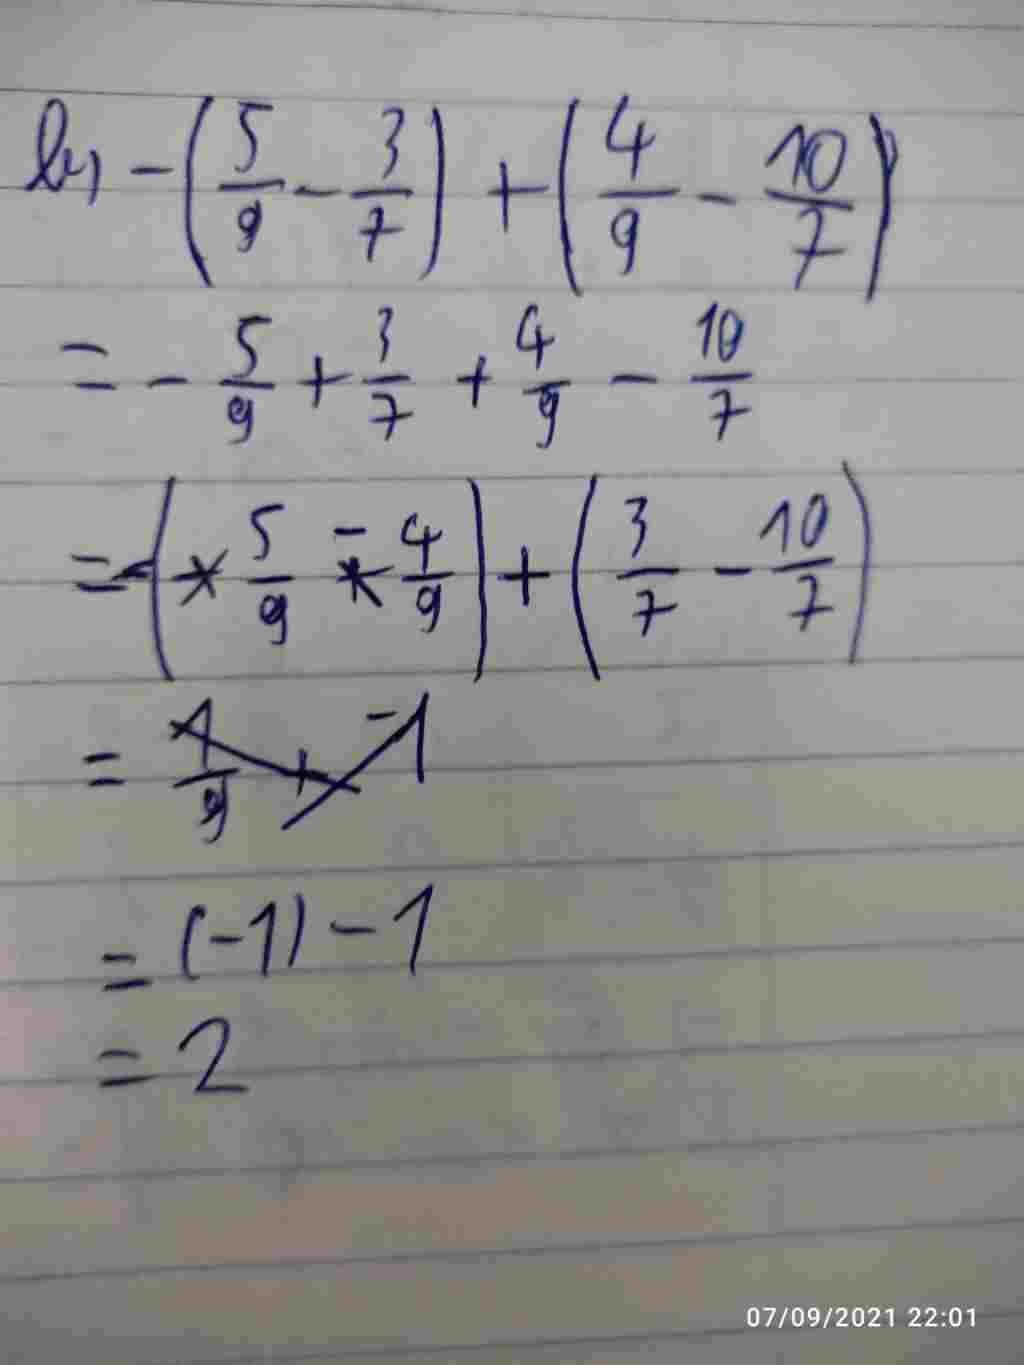 b, -(5/9 - 3/7) + (4/9 - 10/7)
= - 5/9 + 3/7 + 4/9 - 10/7
= -(5/9 - 4/9) + (3/7 - 10/7)
= 1/9 + -1
= (-1) - 1
= 2
07/09/2021 22:01